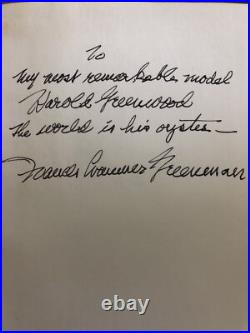 To
My most remarkable model
Harold Greenwood
The world is his oyster —
Frances Cranmer Greenman